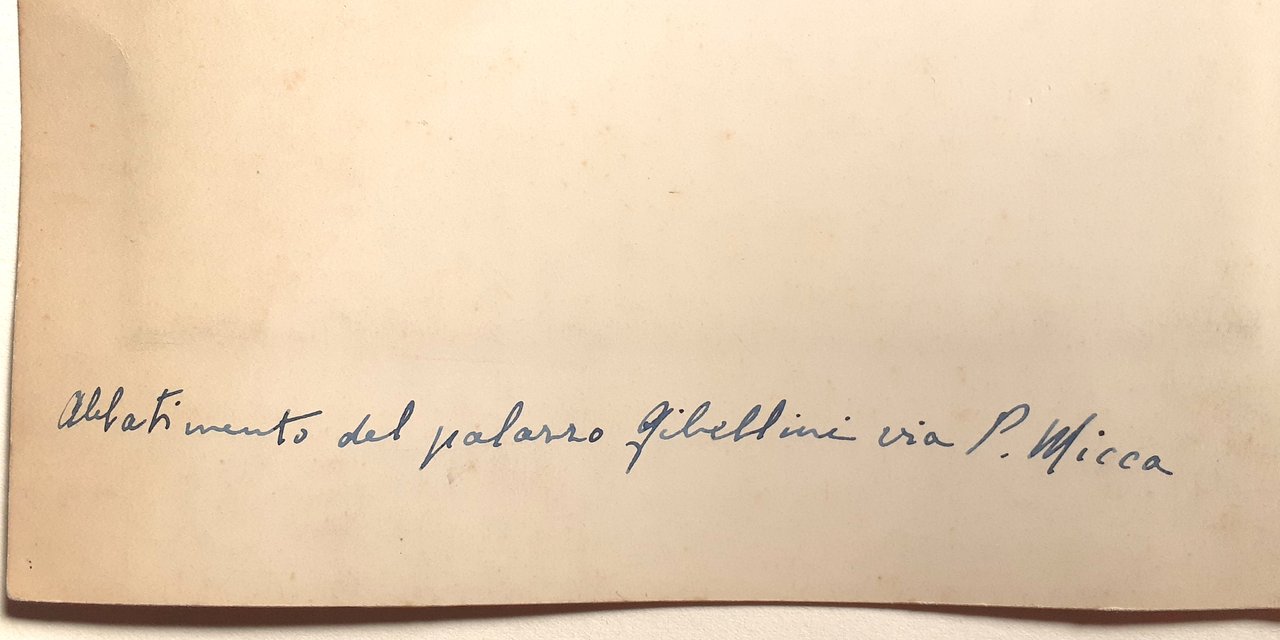 Abbatimento del palazzo Gibellini via P. Micca